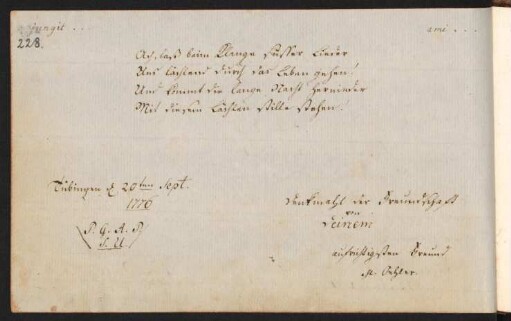 jungit . .
ami . . .
228.
Ach, laß beim Klange süsser Lieder
Uns lächlend durch das Leben gehen!
Und kommt die lange Nacht hernieder
Mit diesem Lächlen stille stehen!
Tübingen d 20ten Sept.
1776
Denkmahl der Freundschaft
von
Deinem
aufrichtigsten Freund
M. Oehler.